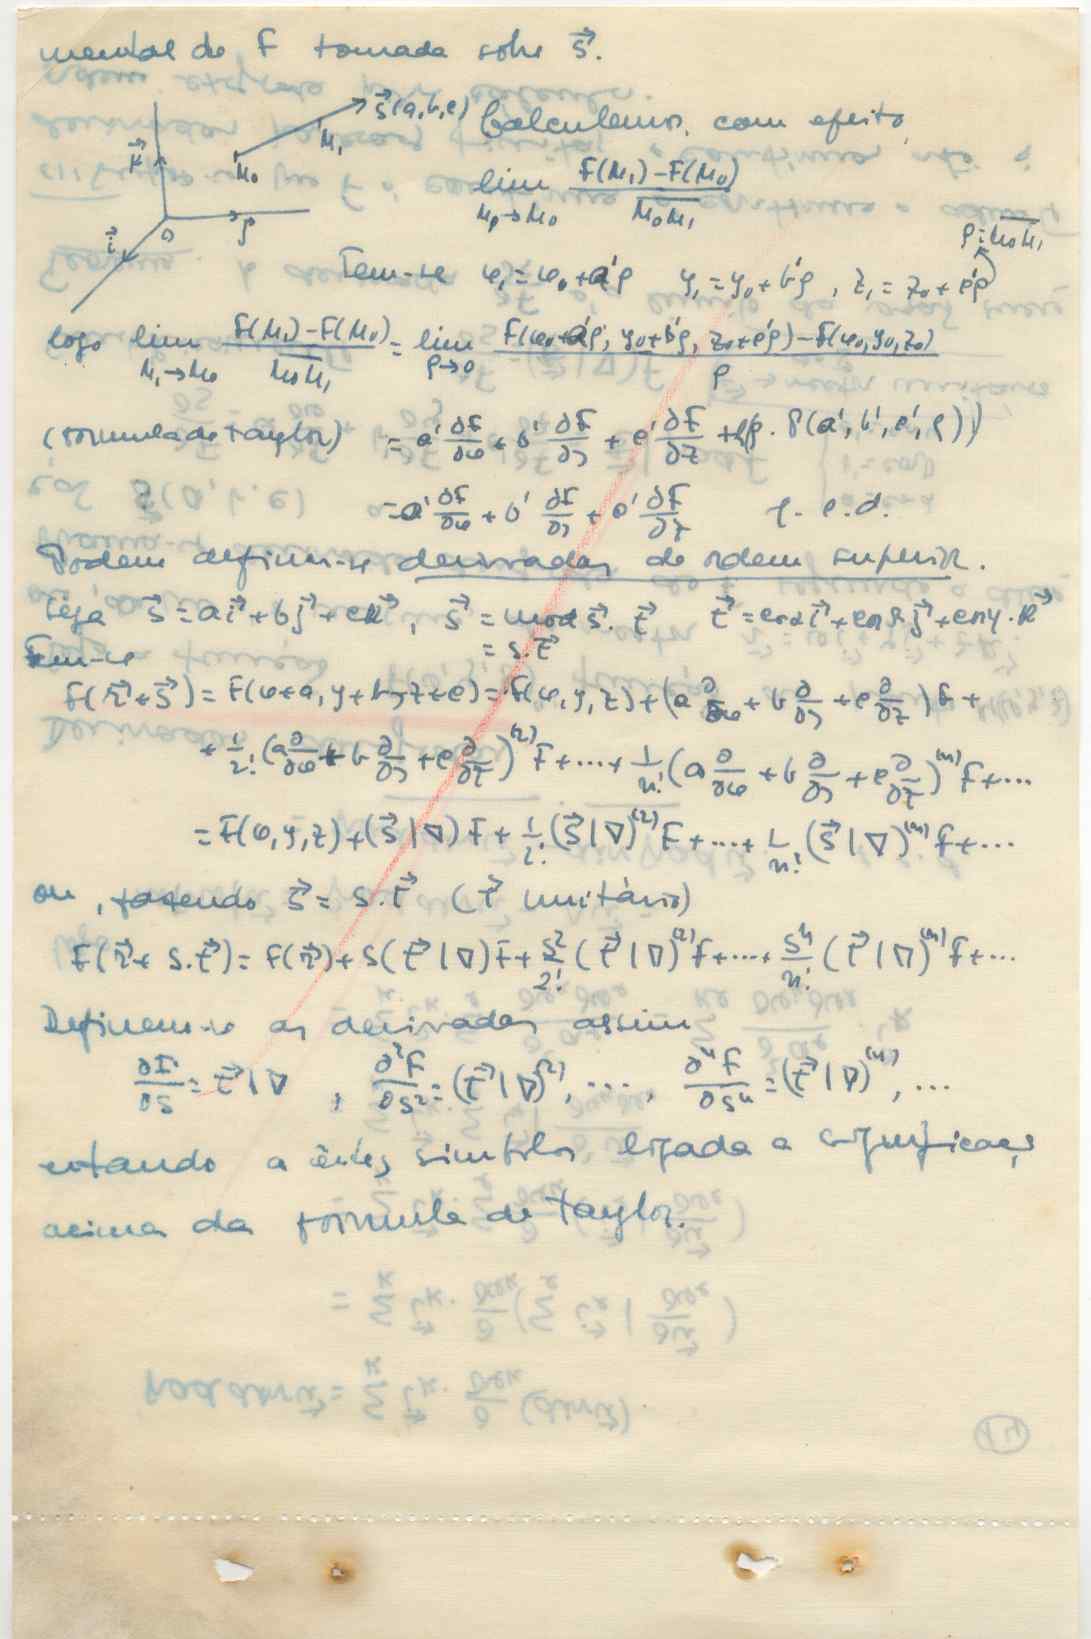 mental de F tomada sobre s⃗.
s⃗(a,b,c) Calculemos, com efeito,
k⃗ M₀ M₁
lim F(M₁)−F(M₀) / M₀M₁
M₁→M₀
i⃗ o j⃗ ρ=M₀M₁
Tem-se x₁=x₀+a'ρ y₁=y₀+b'ρ, z₁=z₀+c'ρ
logo lim F(M₁)−F(M₀) / M₀M₁ = lim F(x₀+a'ρ, y₀+b'ρ, z₀+c'ρ)−F(x₀,y₀,z₀) / ρ
M₁→M₀ ρ→0
(formula de Taylor) = a' ∂F/∂x + b' ∂F/∂y + c' ∂F/∂z + (a', b', c', ρ))
= a' ∂F/∂x + b' ∂F/∂y + c' ∂F/∂z q. e. d.
Podem definir-se derivadas de ordem superior.
Seja s⃗ = a i⃗ + b j⃗ + c k⃗, s⃗ = mod s⃗. t⃗ t⃗ = cosα i⃗ + cosβ j⃗ + cosγ. k⃗
= s.t⃗
Tem-se
F(r⃗+s⃗) = F(x+a, y+b, z+c) = F(x,y,z) + (a ∂/∂x + b ∂/∂y + c ∂/∂z) F +
+ 1/2! (a ∂/∂x + b ∂/∂y + c ∂/∂z)⁽²⁾ F + ... + 1/n! (a ∂/∂x + b ∂/∂y + c ∂/∂z)⁽ⁿ⁾ F + ...
= F(x,y,z) + (s⃗|∇) F + 1/2! (s⃗|∇)⁽²⁾ F + ... + 1/n! (s⃗|∇)⁽ⁿ⁾ F + ...
ou, fazendo s⃗ = s.t⃗ (t⃗ unitário)
F(r⃗ + s.t⃗) = F(r⃗) + s(t⃗|∇) F + s²/2! (t⃗|∇)⁽²⁾ F + ... + sⁿ/n! (t⃗|∇)⁽ⁿ⁾ F + ...
Definem-se as derivadas assim
∂F/∂s = t⃗|∇ , ∂²F/∂s² = (t⃗|∇)⁽²⁾, ..., ∂ⁿF/∂sⁿ = (t⃗|∇)⁽ⁿ⁾, ...
estando a êstes simbolos ligada a significação
acima da formula de Taylor.